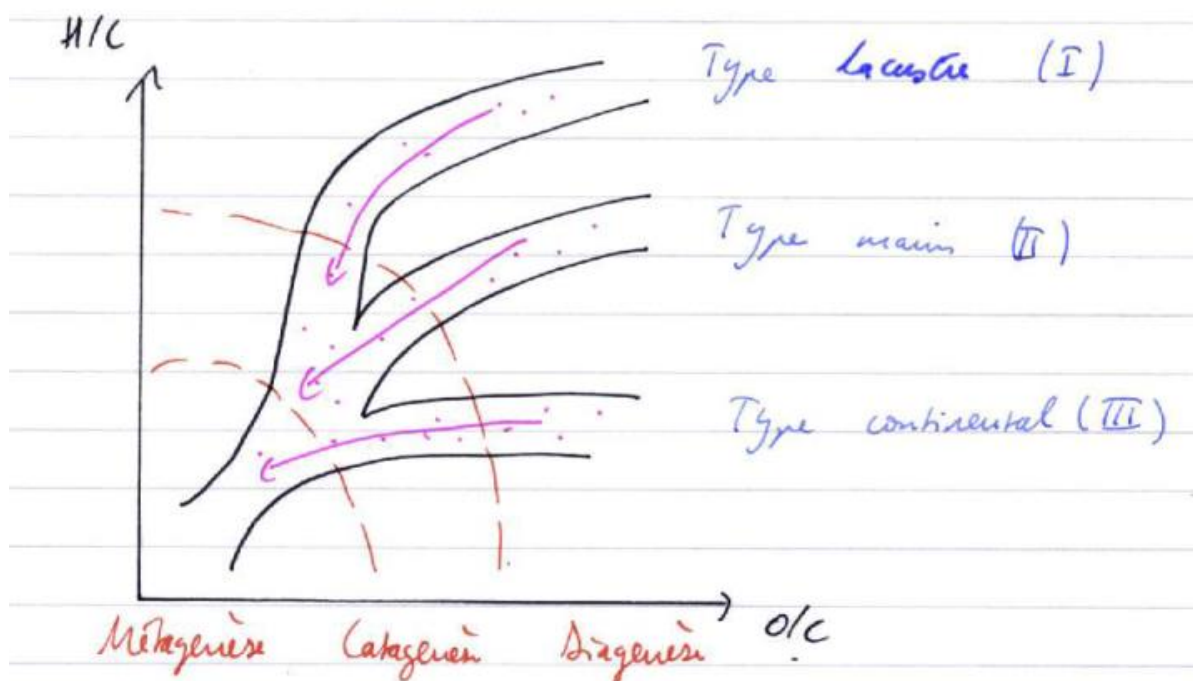 H/C
Type lacustre (I)
Type marin (II)
Type continental (III)
O/C
Métagenèse Catagenèse Diagenèse